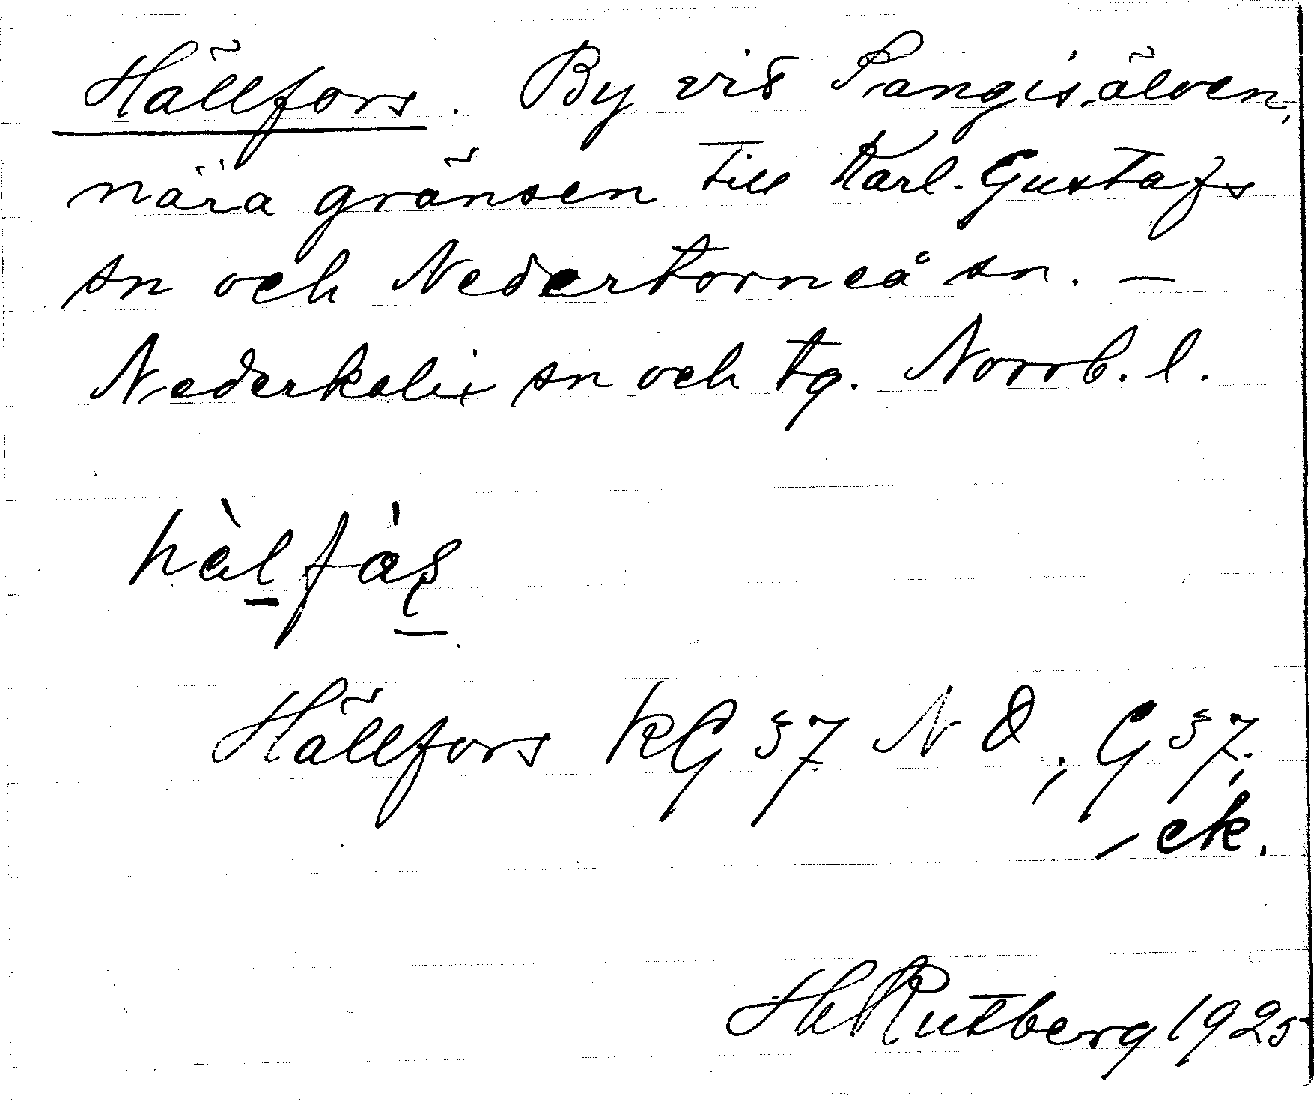 Hällfors. By vid Sangisälven,
nära gränsen till Karl-Gustafs
sn och Nedertorneå sn. —
Nederkalix sn och tg. Norrb. l.
hàlfás
Hällfors KG 37 NO; G 37;
, ek.
H Rutberg 1925